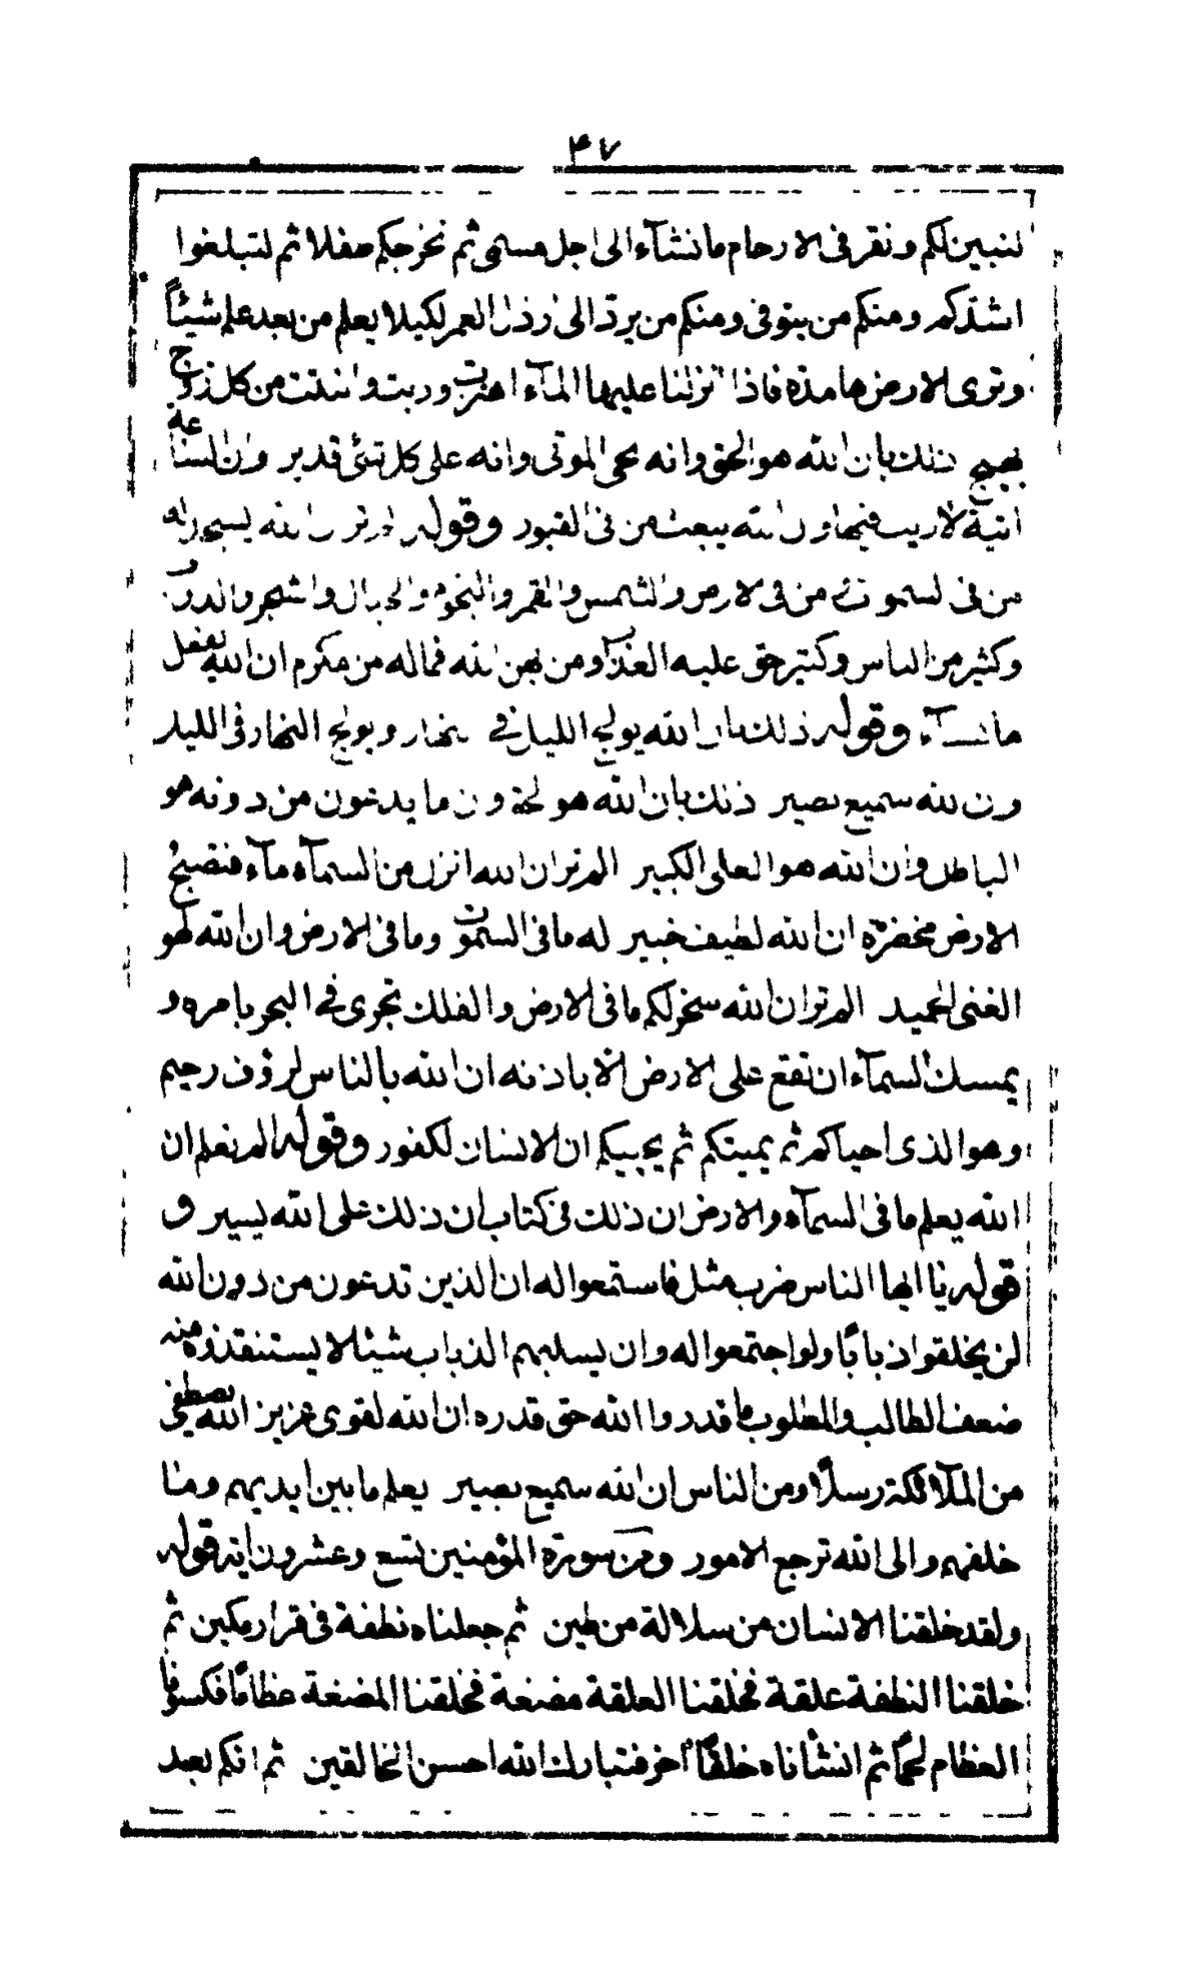 ۴۷
لنبين لكم ونقر فى الارحام مانشآء الى اجل مسمى ثم نخرجكم طفلا ثم لتبلغوا
اشدّكم ومنكم من يتوفى ومنكم من يردّ الى ارذل العمر لكيلا يعلم من بعد علم شيئاً
وترى الارض هامدة فاذا انزلنا عليها المآء اهتزت وربت وانبتت من كل زوج
بهيج ذلك بان الله هو الحق وانه يحى الموتى وانه على كل شئ قدير وان الساعة
اتية لاريب فيها وان الله يبعث من فى القبور وقوله الم تر ان الله يسجد له
من فى السموات ومن فى الارض والشمس والقمر والنجوم والجبال والشجر والدواب
وكثير من الناس وكثير حق عليه العذاب ومن يهن الله فماله من مكرم ان الله يفعل
مايشآء وقوله ذلك بان الله يولج الليل فى النهار ويولج النهار فى الليل
وان الله سميع بصير ذلك بان الله هو الحق وان ما يدعون من دونه هو
الباطل وان الله هو العلى الكبير الم تر ان الله انزل من السمآء مآء فتصبح
الارض مخضرّة ان الله لطيف خبير له مافى السموات ومافى الارض وان الله لهو
الغنى الحميد الم تر ان الله سخر لكم مافى الارض والفلك تجرى فى البحر بامره و
يمسك السمآء ان تقع على الارض الّا باذنه ان الله بالناس لرؤف رحيم
وهو الذى احياكم ثم يميتكم ثم يحييكم ان الانسان لكفور وقوله الم تعلم ان
الله يعلم مافى السمآء والارض ان ذلك فى كتاب ان ذلك على الله يسير و
قوله يا ايها الناس ضرب مثل فاستمعوا له ان الذين تدعون من دون الله
لن يخلقوا ذباباً ولو اجتمعوا له وان يسلبهم الذباب شيئا لا يستنقذوه منه
ضعف الطالب والمطلوب ما قدروا الله حق قدره ان الله لقوى عزيز الله يصطفى
من الملآئكة رسلاً ومن الناس ان الله سميع بصير يعلم ما بين ايديهم وما
خلفهم والى الله ترجع الامور ومن سورة المؤمنين تسع وعشرون اية قوله
ولقد خلقنا الانسان من سلالة من طين ثم جعلناه نطفة فى قرار مكين ثم
خلقنا النطفة علقة فخلقنا العلقة مضغة فخلقنا المضغة عظاماً فكسونا
العظام لحماً ثم انشأناه خلقاً آخر فتبارك الله احسن الخالقين ثم انكم بعد